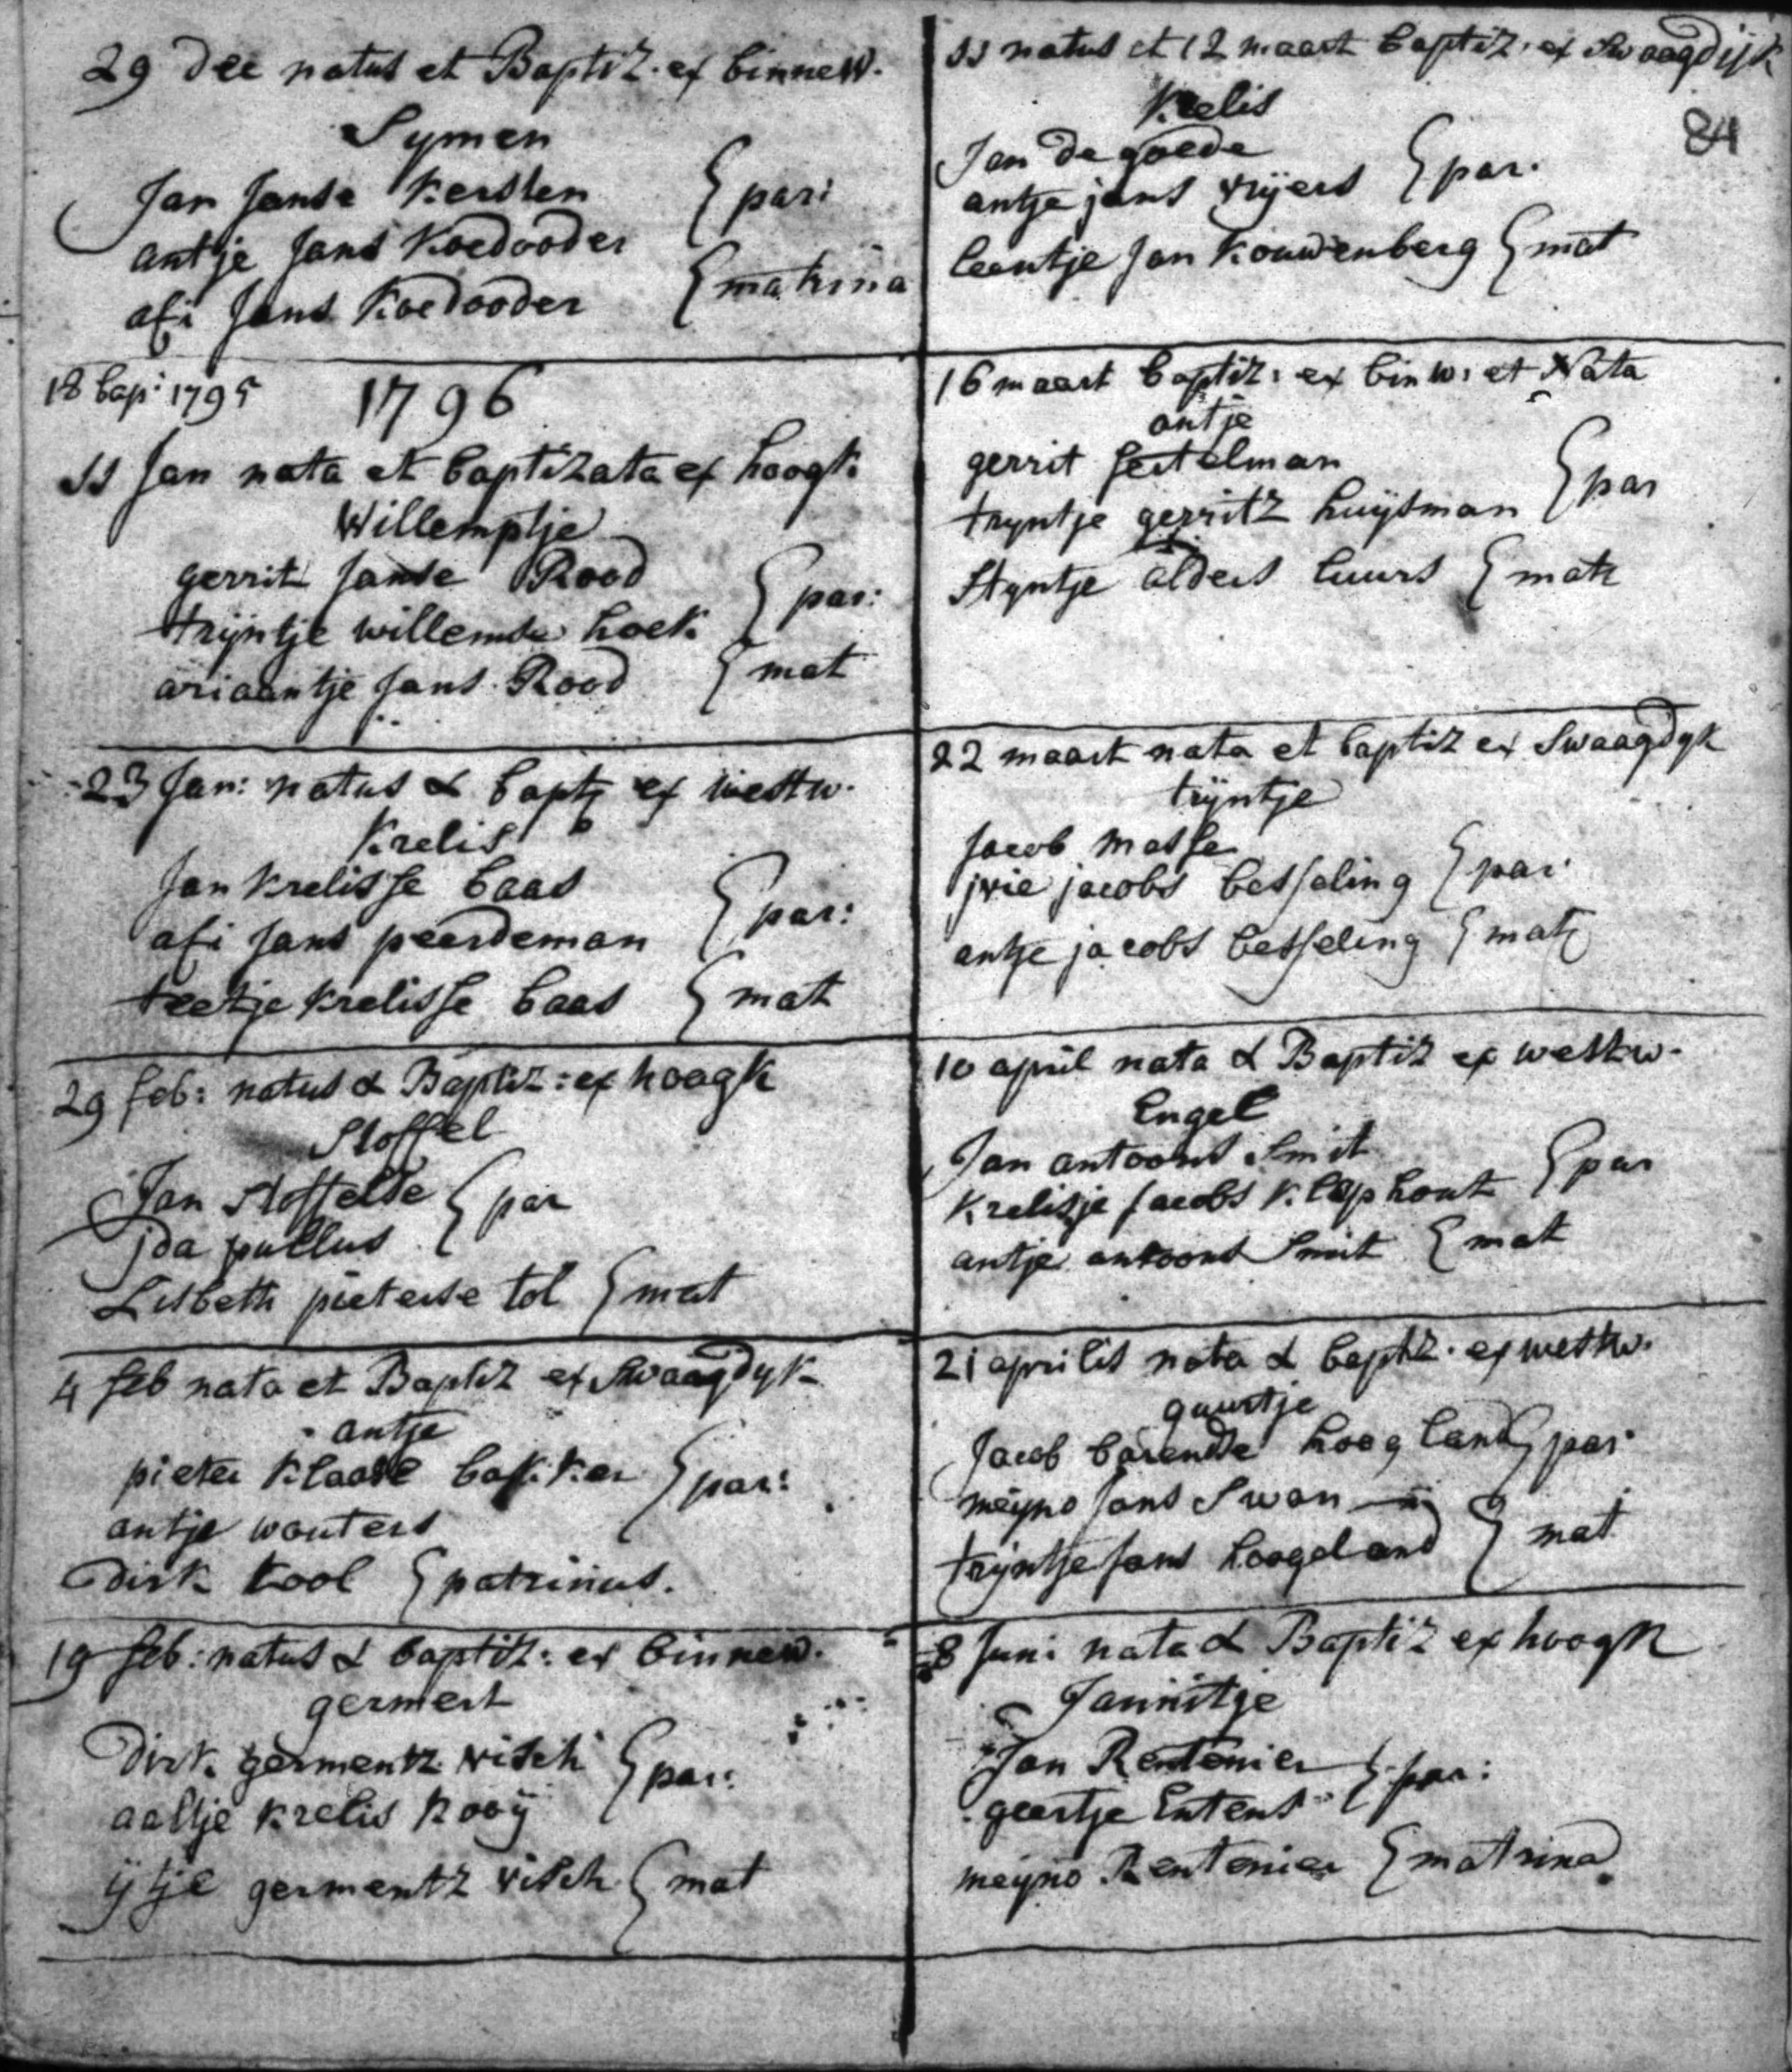 29 Dec natus et Baptiz. ex binnew.
Symen
Jan Janse Kersten { par:
antje Jans Koedooder
afi Jans Koedooder { matrina
18 bap: 1795 1796
11 Jan nata et baptizata ex hoogk.
Willemptje
gerrit Janse Rood { par:
trijntje willemse hoek
ariaantje Jans Rood { mat
23 Jan: natus & bapt ex westw.
Krelis
Jan Krelisse baas { par:
afi Jans peerdeman
teetje Krelisse baas { mat
29 feb: natus & Baptiz: ex hoogk
Stoffel
Jan Stoffelse { par
jda pullus
Lisbeth pieterse tol { mat
4 feb nata et Baptiz ex Swaagdyk
antje
pieter Klaase bakker { par:
antje wouters
Dirk kool { patrinus.
19 feb: natus & baptiz: ex binnew.
germent
Dirk germentz visch { par:
aaltje Krelis Kooÿ
ÿtje germentz visch { mat
11 natus et 12 maart baptiz. ex Swaagdijk
84
Krelis
Jan De goede { par.
antje jans vrÿers
leentje Jan Kouwenberg { mat
16 maart baptiz: ex binw: et Nata
antje
gerrit festelman { par
tryntje gerritz huÿsman
Styntje alders luurs { mat
22 maart nata et baptiz ex Swaagdyk
trÿntje
Jacob masse { par:
jvie jacobs besseling
antje jacobs besseling { mat
10 april nata & Baptiz ex westw.
Engel
Jan antoons Smit { par
Krelisje Jacobs Klaphout
antje antoons Smit { mat
21 aprilis nata & baptiz. ex westw.
guurtje
Jacob barendse hoogland { par
meÿno Jans Swan
trÿntje Jans hoogeland { mat
8 Juni nata & Baptiz ex hoogk
Jannitje
Jan Rentenier { par:
geertje Entens
meÿno Rentenier { matrina